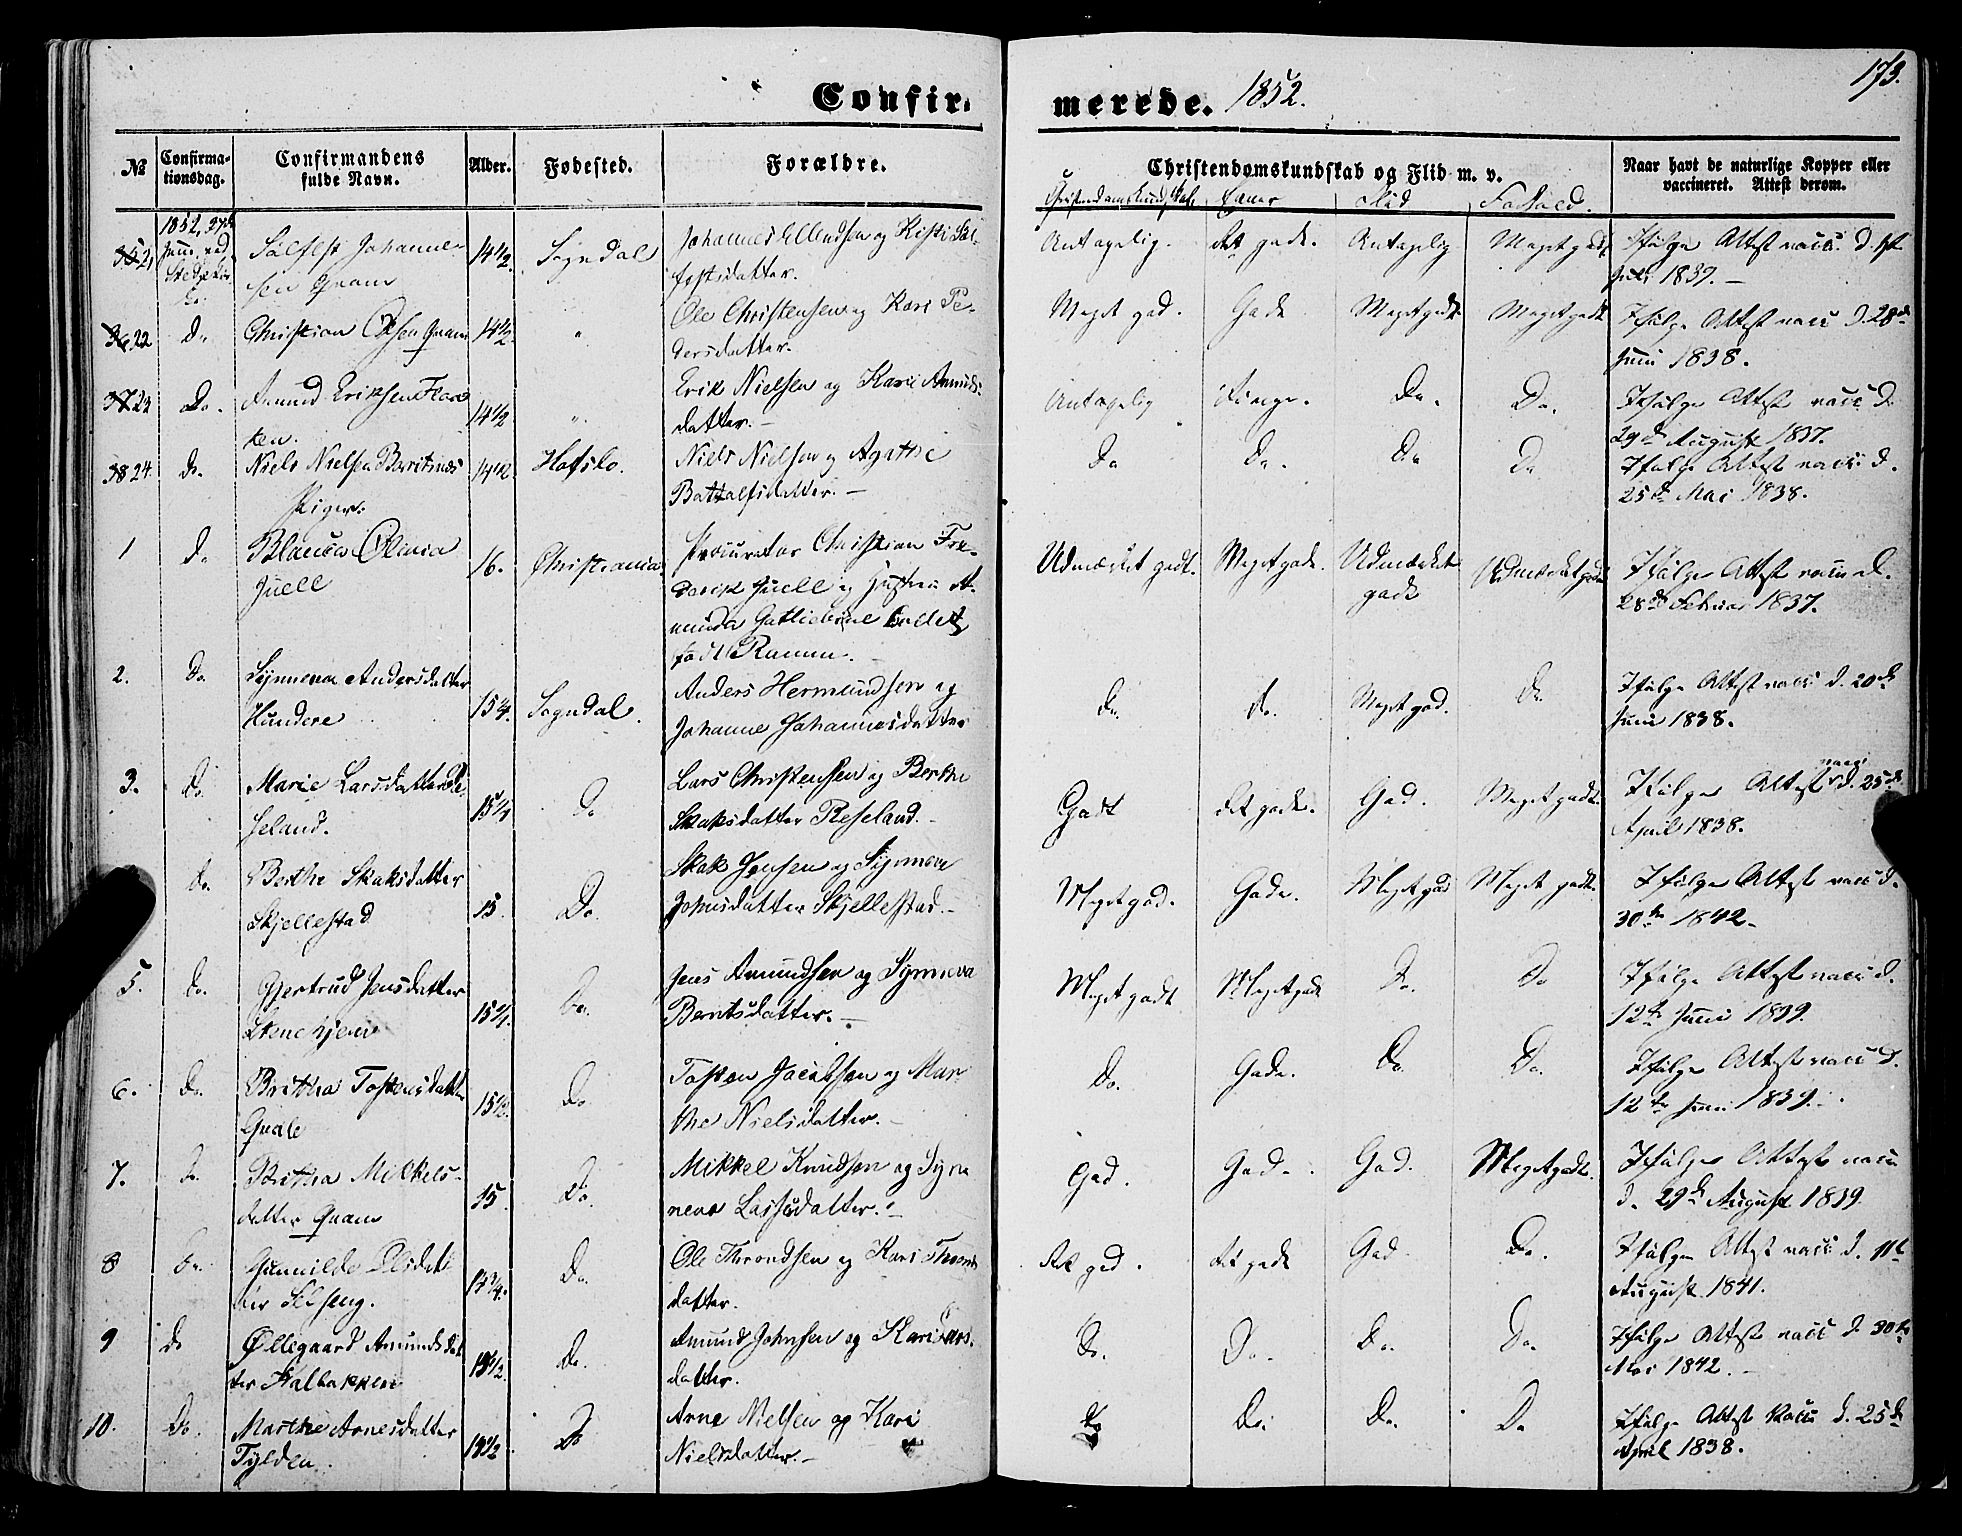 Confir-
merede. 1852.
173.
№
Confirma-
tionsdag.
Confirmandens
fulde Navn.
Alder.
Fødested.
Forældre.
Christendomskundskab og Flid m. v.
Naar havt de naturlige Kopper eller
vaccineret. Attest derom.
Christendomskundskab
Flid
Forhold.
1852, 27de
Juni, ved
21 Johanne-
sen Qvam 14 1/2 Sogndal Johannes Ellendsen og Kisti
datter. Antagelig. Ret godt. Antagelig Meget godt Ifølge Attest vacc. d.
1839.
22 Do Christian Olsen Qvam 14 1/2 " Ole Christensen og Kari Pe-
dersdatter. Meget god. Godt Meget godt Meget godt Ifølge Attest vacc d. 28de
Juni 1838.
23 Do. Amund Eriksen
ken. 14 1/2 " Erik Nielsen og Kari Amunds-
datter. Antagelig Do. Do. Ifølge Attest vacc d.
29de August 1837.
24. Do. Niels Nielsen
14 1/2 Hafslo. Niels Nielsen og Agathe
Battalfsdatter. Do Do. Do Do Ifølge Attest vacc d.
25de Mai 1838.
1 Do Blanca Olivia
Juell 16. Christiania Procurator Christian Fre-
derik Juell og Hustru A-
munda Gotliebine Collett
født Ramm. Udmærket godt. Meget godt. Udmærket
godt Udmærket godt Ifølge Attest vacc d.
28de Februar 1837.
2. Do Synneva Andersdatter
Hundere 15 1/4 Sogndal. Anders Hermundsen og
Johanne Johannesdatter Do. Do. Meget god. Do. Ifølge Attest vacc d. 20de
Juni 1838.
3. Do. Marie Larsdatter Re-
seland. 15 1/4 Do Lars Christensen og Berthe
Skaksdatter Reseland. Godt Ret godt. God. Meget godt. Ifølge Attest vacc d. 25de
April 1838.
Do. Berthe Skaksdatter
Skjellestad 15 Do. Skak Jensen og Synneve
Johnsdatter Skjellestad. Meget god. Godt. Meget god Meget godt. Ifølge Attest vacc d.
30te 1842.
5. Do. Gjertrud Jensdatter
15 1/4 Do. Jens Amundsen og Synneva
Berntsdatter. Meget godt Meget godt Do. Do Ifølge Attest vacc d.
12te Juni 1839.
6. Do. Brittha Tostensdatter
Qvale 15 1/2 Do Tosten Jacobsen og Mar-
the Nielsdatter. Do. Godt. Do Do. Ifølge Attest vacc d.
12te Juni 1839.
7. Do. Brittha Mikkels-
datter Qvam 15 Do. Mikkel Knudsen og Syn-
neva Lassesdatter. God. God. God. Meget godt. Ifølge Attest vacc
d. 29de August 1839.
8 Do. Gunnilde Olsdat-
ter Selseng. 14 3/4 Do. Ole Throndsen og Kari Thronds
datter. Ret god. Ret godt God. Do. Ifølge Attest vacc d. 11te
August 1841.
9 Do Øllegaard Amundsdat
ter Halbakken 14 1/2 Do. Amund Johnsen og Kari Lars-
datter. Do. Do. Do. Do. Ifølge Attest vacc d. 30te
Mai 1842.
10. Do. Marthe Arnesdatter
Tylden 14 1/2 Do Arne Nielsen og Kari
Nielsdatter. Do Do. Do. Do Ifølge Attest vacc d. 25de
April 1838.